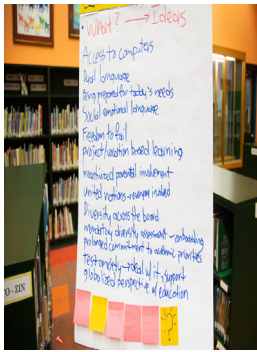 What? → Ideals
Access to computers
Dual language
Being prepared for today's needs
Social emotional language
Freedom to fail
project/vocation based learning
monitored parental involvement
united nations → everyone involved
Diversity across the board
mandatory diversity assessment - onboarding
prolonged commitment to academic priorities
Test anxiety → deal w/ it, support
globalized perspective of education
O - ZIN